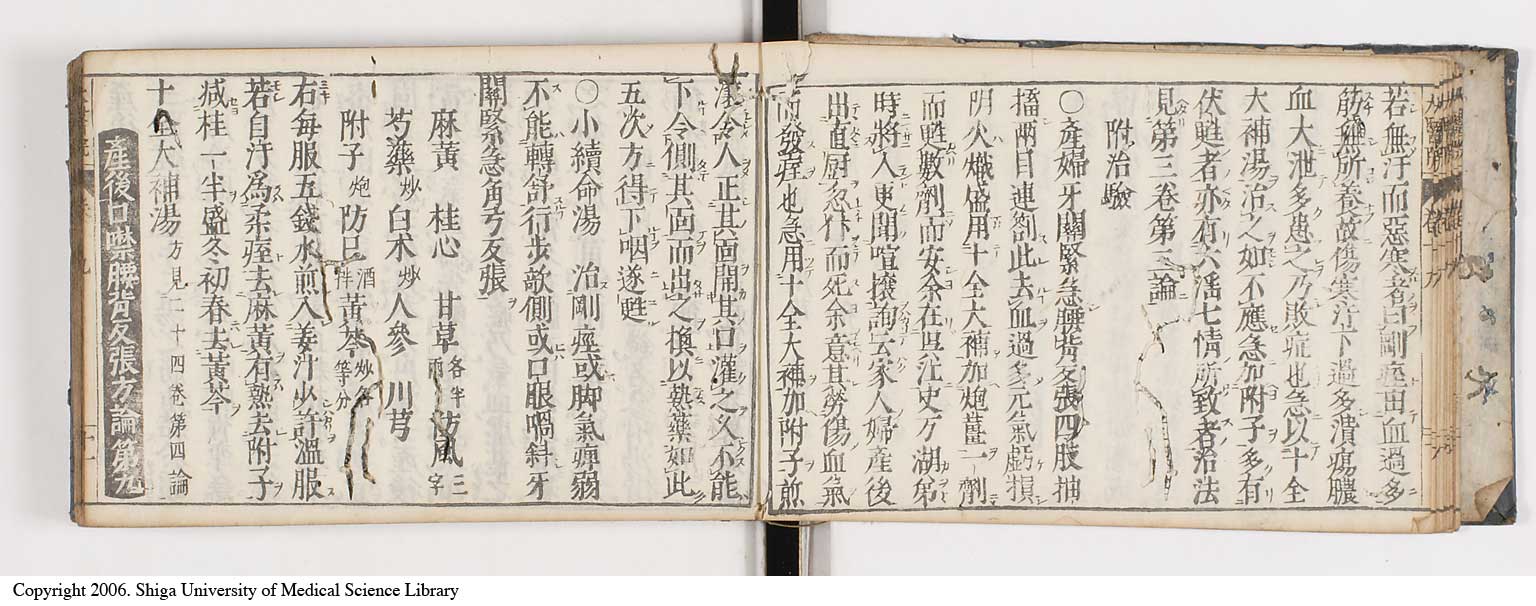 若無汗而惡寒者曰剛痓由血過多
筋無所養故傷寒汗下過多潰瘍膿
血大泄多患之乃敗症也急以十全
大補湯治之如不應急加附子多有
伏甦者亦有六滛七情所致者治法
見第三卷第二論
附治驗
〇產婦牙關緊急腰背反張四肢抽
搐兩目連劄此去血過多元氣虧損
明火熾盛用十全大補加炮薑一劑
而甦數劑而安余在吳江史万湖弟
時將入更聞喧攘詢云家人婦產後
出直厨忽仆而死余意其勞傷血氣
而發痓也急用十全大補加附子煎
滾令人正其面開其口灌之又不能
下令側其面而出之換以熱藥如此
五次方得下咽遂甦
〇小續命湯 治剛痓或脚氣痺弱
不能轉舒行步欹側或口眼喎斜牙
關緊急角弓反張
麻黃 桂心 甘草各半兩 防風三字
芍藥炒 白朮炒 人參 川芎
附子炮 防巳酒拌 黃芩炒各等分
右每服五錢水煎入姜汁少許溫服
若自汗爲柔痓去麻黃有熱去附子
減桂一半盛冬初春去黃芩
十全大補湯方見二十四卷第四論
產後口噤腰背反張方論第九
Copyright 2006. Shiga University of Medical Science Library